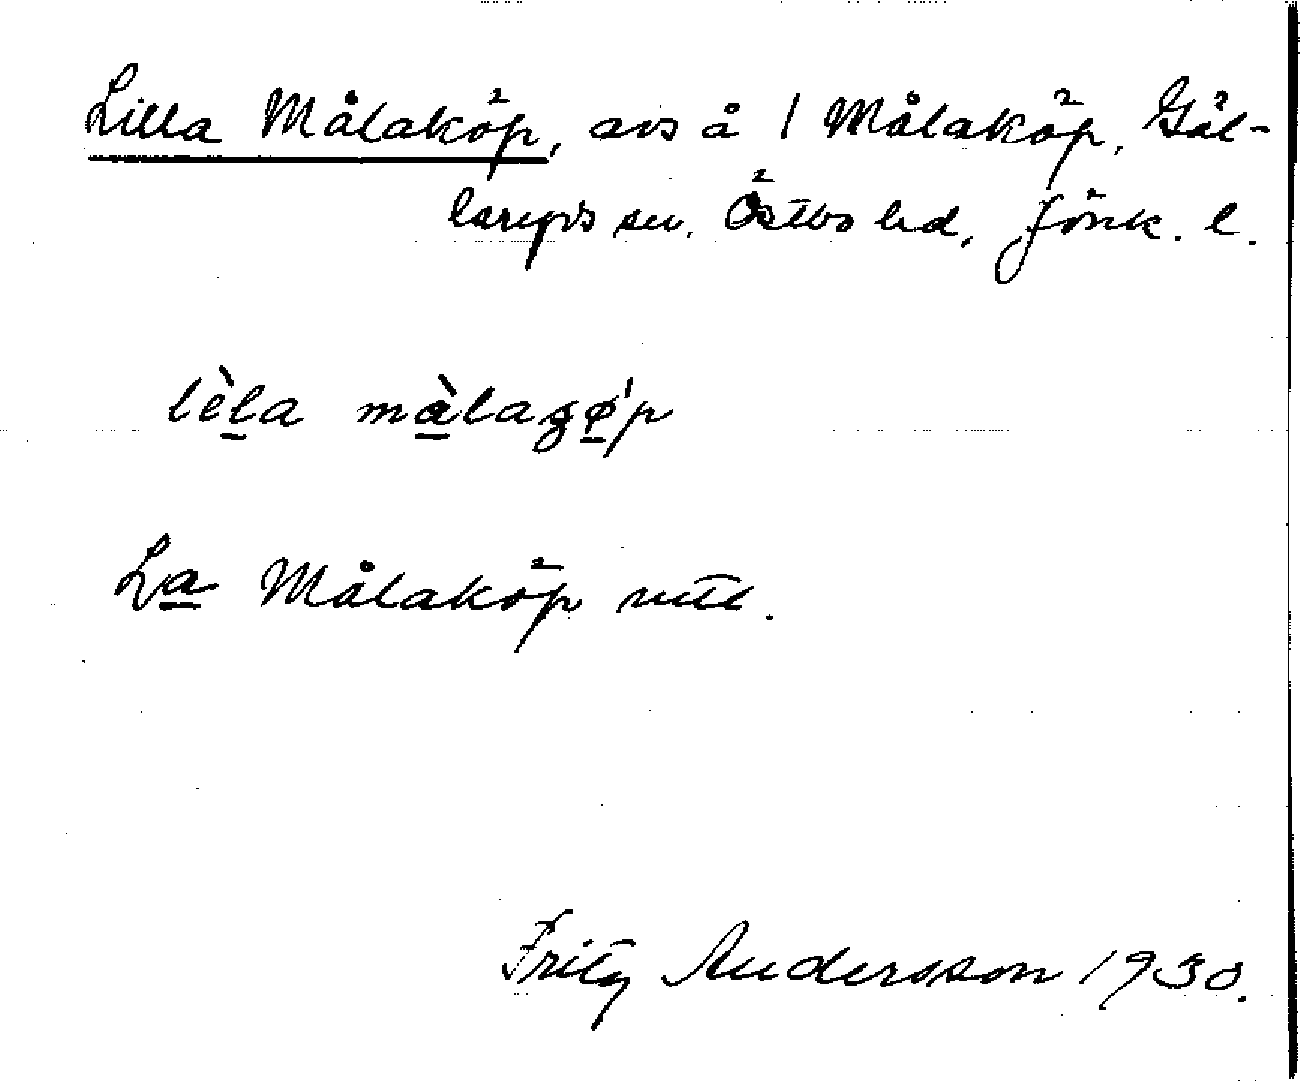 Lilla Målaköp, avs å 1 Målaköp, Gäl-
laryds sn. Östbo hd, Jönk. l.
lèla màlagǿp
La Målaköp utt.
Fritz Andersson 1930.